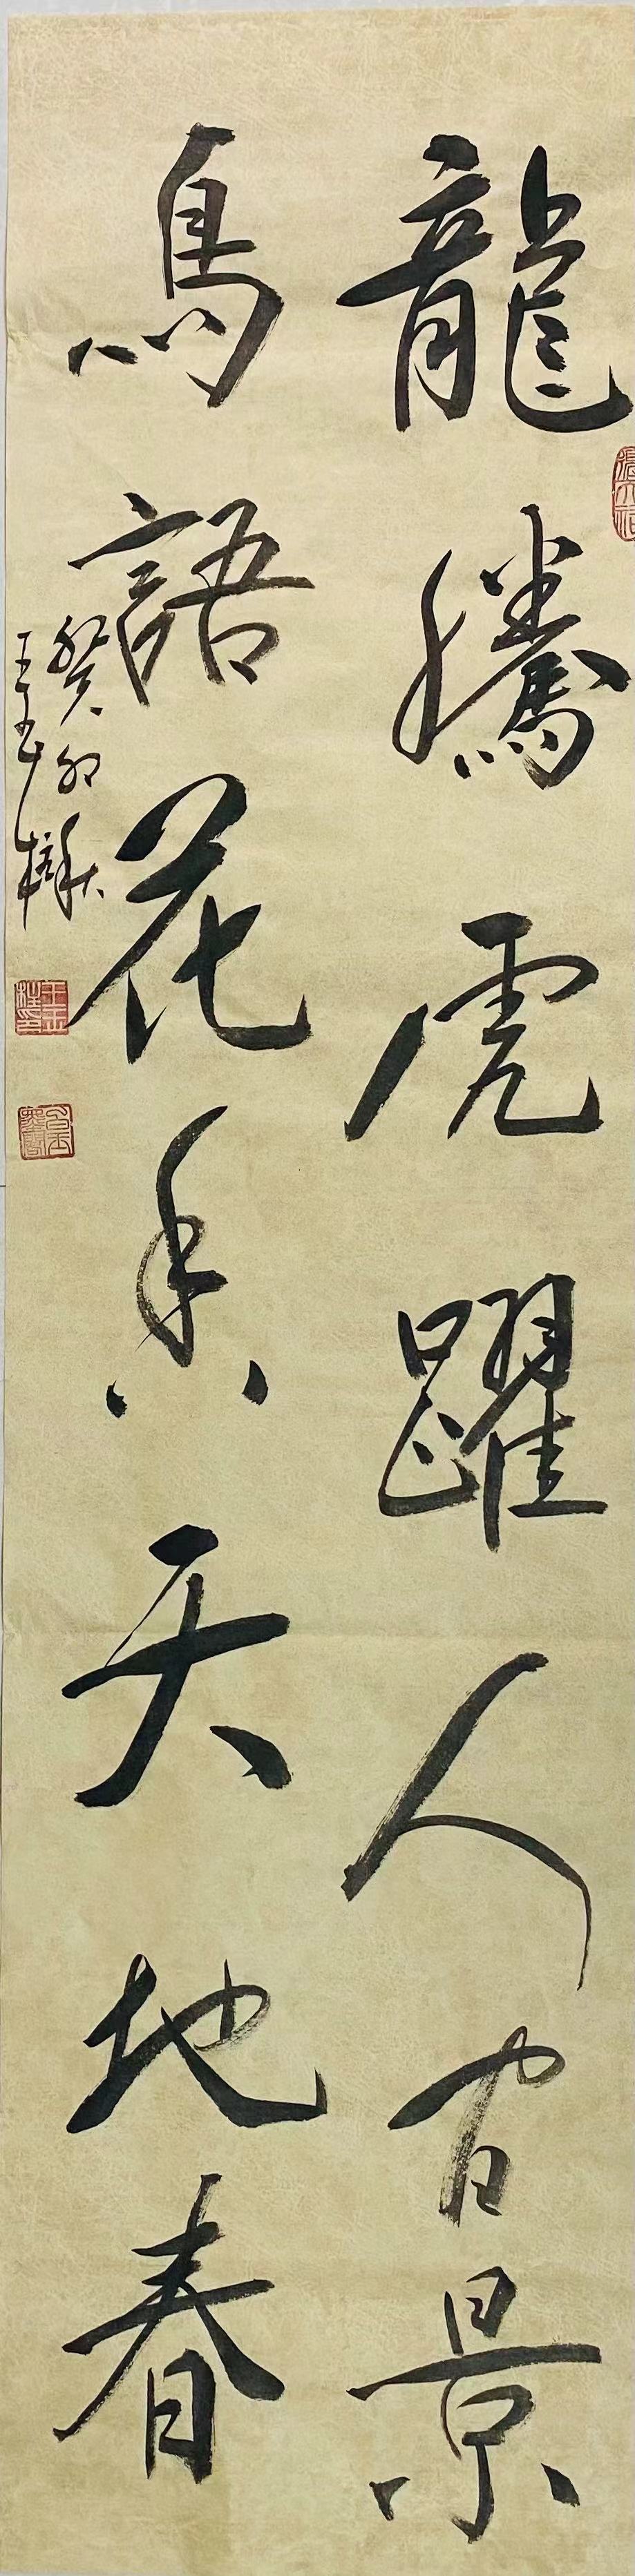 龍騰虎躍人间景
鳥語花香天地春
癸卯秋
王玉